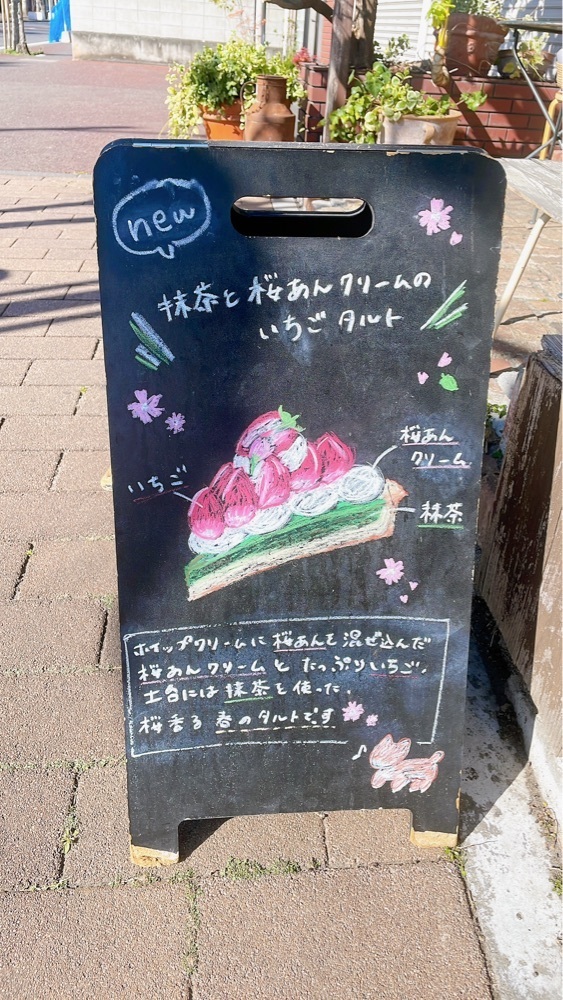 new
抹茶と桜あんクリームの
いちごタルト
いちご
桜あん
クリーム
抹茶
ホイップクリームに桜あんを混ぜ込んだ
桜あんクリームとたっぷりいちご。
土台には抹茶を使った、
桜香る春のタルトです